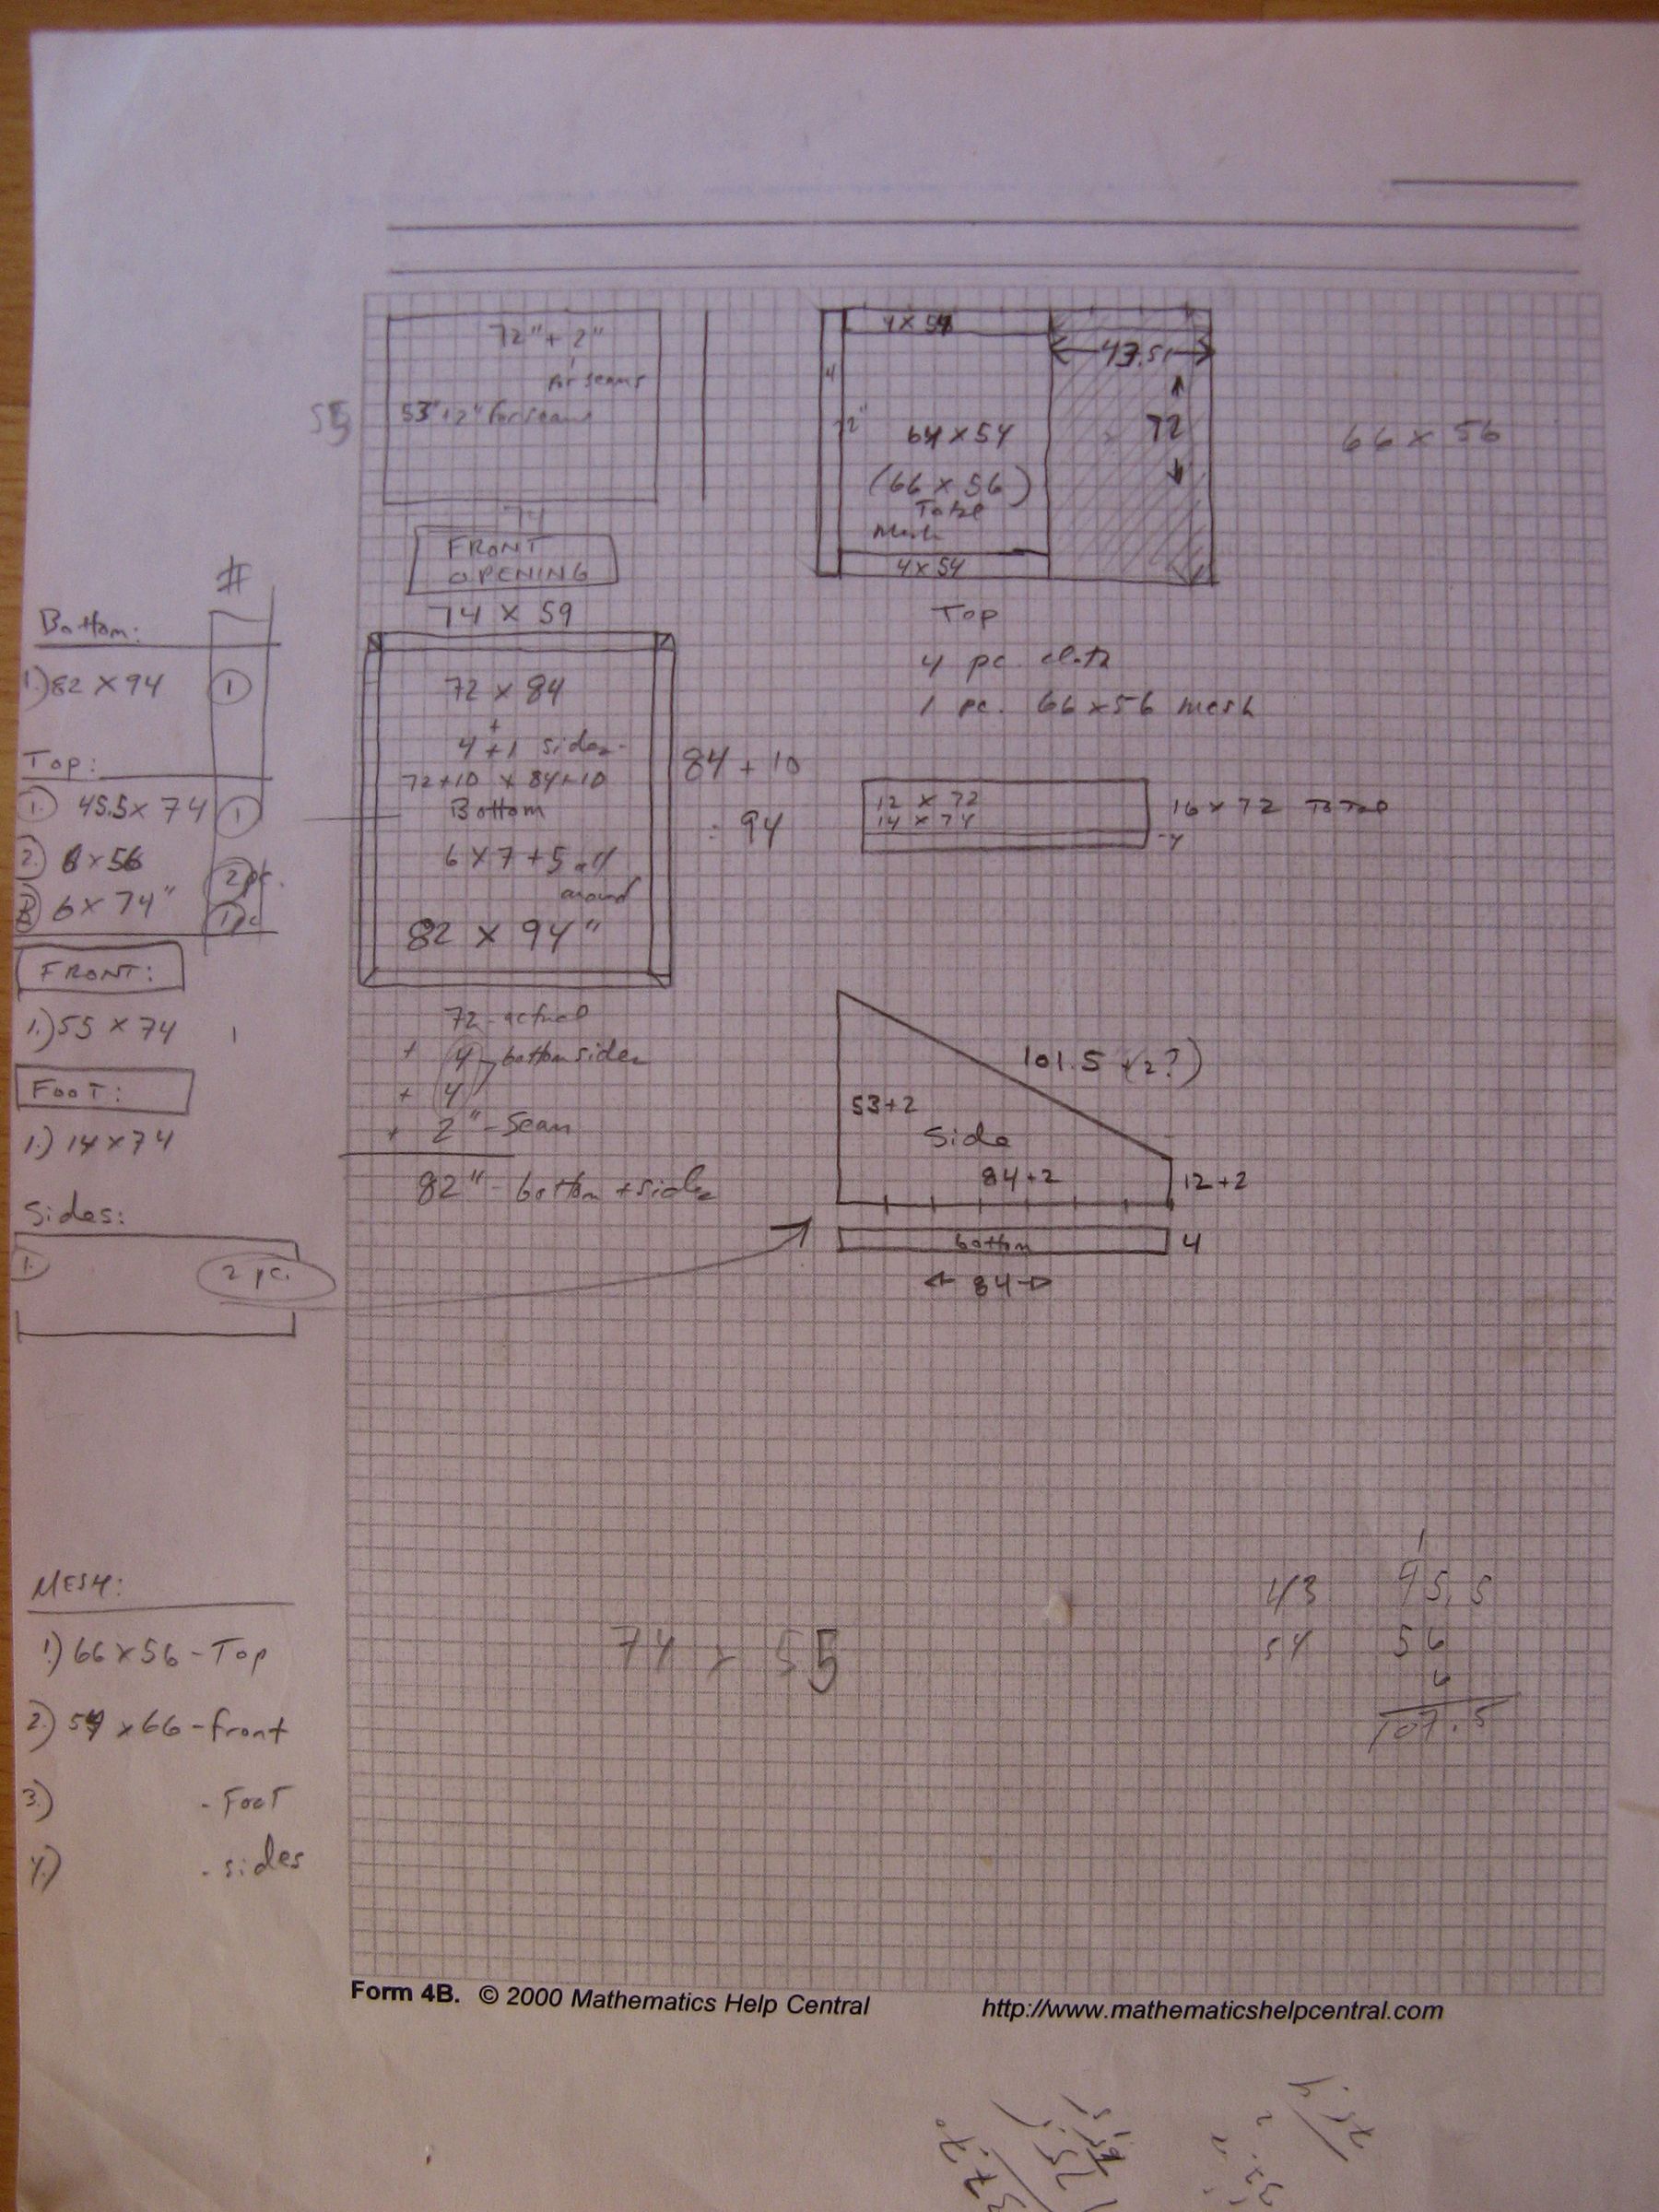 72" + 2"
for seams
55
53"+2" for seams
74
FRONT
OPENING
74 x 59
4 x 54
43.5
4
72"
64 x 54
72
(66 x 56)
Total
Mesh
4 x 54
66 x 56
Top
4 pc. cloth
1 pc. 66 x 56 mesh
#
Bottom:
1.) 82 x 94 1
Top:
1. 45.5 x 74 1
2. 6 x 56 2 pc.
3. 6 x 74" 1 pc
FRONT:
1.) 55 x 74 1
FOOT:
1.) 14 x 74
Sides:
1. 2 pc.
72 x 84
+
4+1 sides
72+10 x 84+10
Bottom
6 x 7 + 5 all
around
82 x 94"
84 + 10
94
12 x 72
14 x 74
16 x 72 Total
4
72 - actual
+ 4 - bottom sides
+ 4
+ 2" - Seam
82" - bottom + sides
101.5 (+2?)
53+2
Side
84+2
12+2
bottom
4
84
MESH:
1.) 66 x 56 - Top
2.) 54 x 66 - front
3.) - FOOT
4.) - sides
74 x 55
43
54
1
45.5
56
6
107.5
Form 4B. © 2000 Mathematics Help Central
http://www.mathematicshelpcentral.com